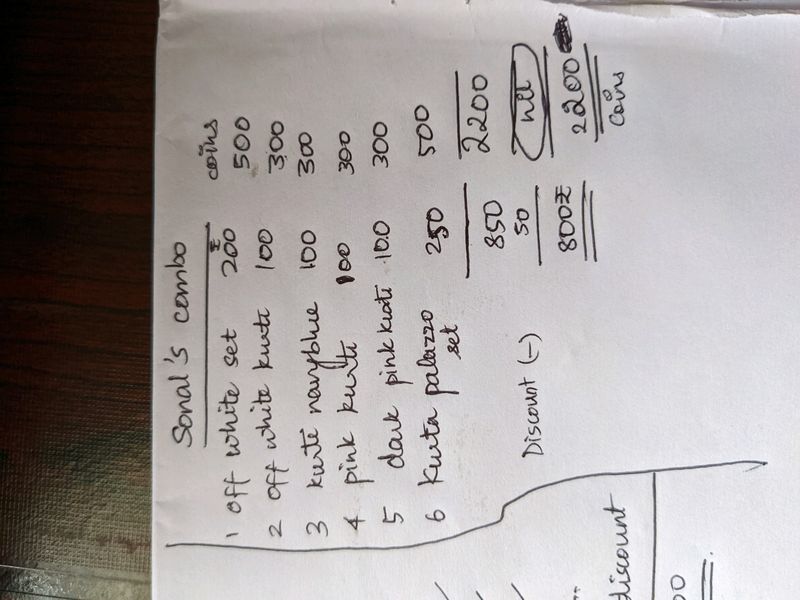 Sonal's combo
₹ coins
1 off white set 200 500
2 off white kurti 100 300
3 kurti navyblue 100 300
4 pink kurti 100 300
5 dark pink kurti 100 300
6 kurta palazzo set 250 500
850 2200
Discount (-) 50 nil
800₹ 2200
coins
discount